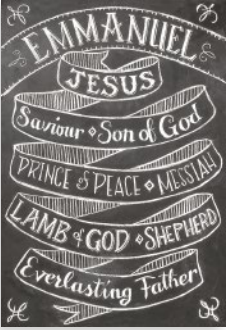 EMMANUEL
JESUS
Saviour • Son of God
PRINCE of PEACE • MESSIAH
LAMB of GOD • SHEPHERD
Everlasting Father